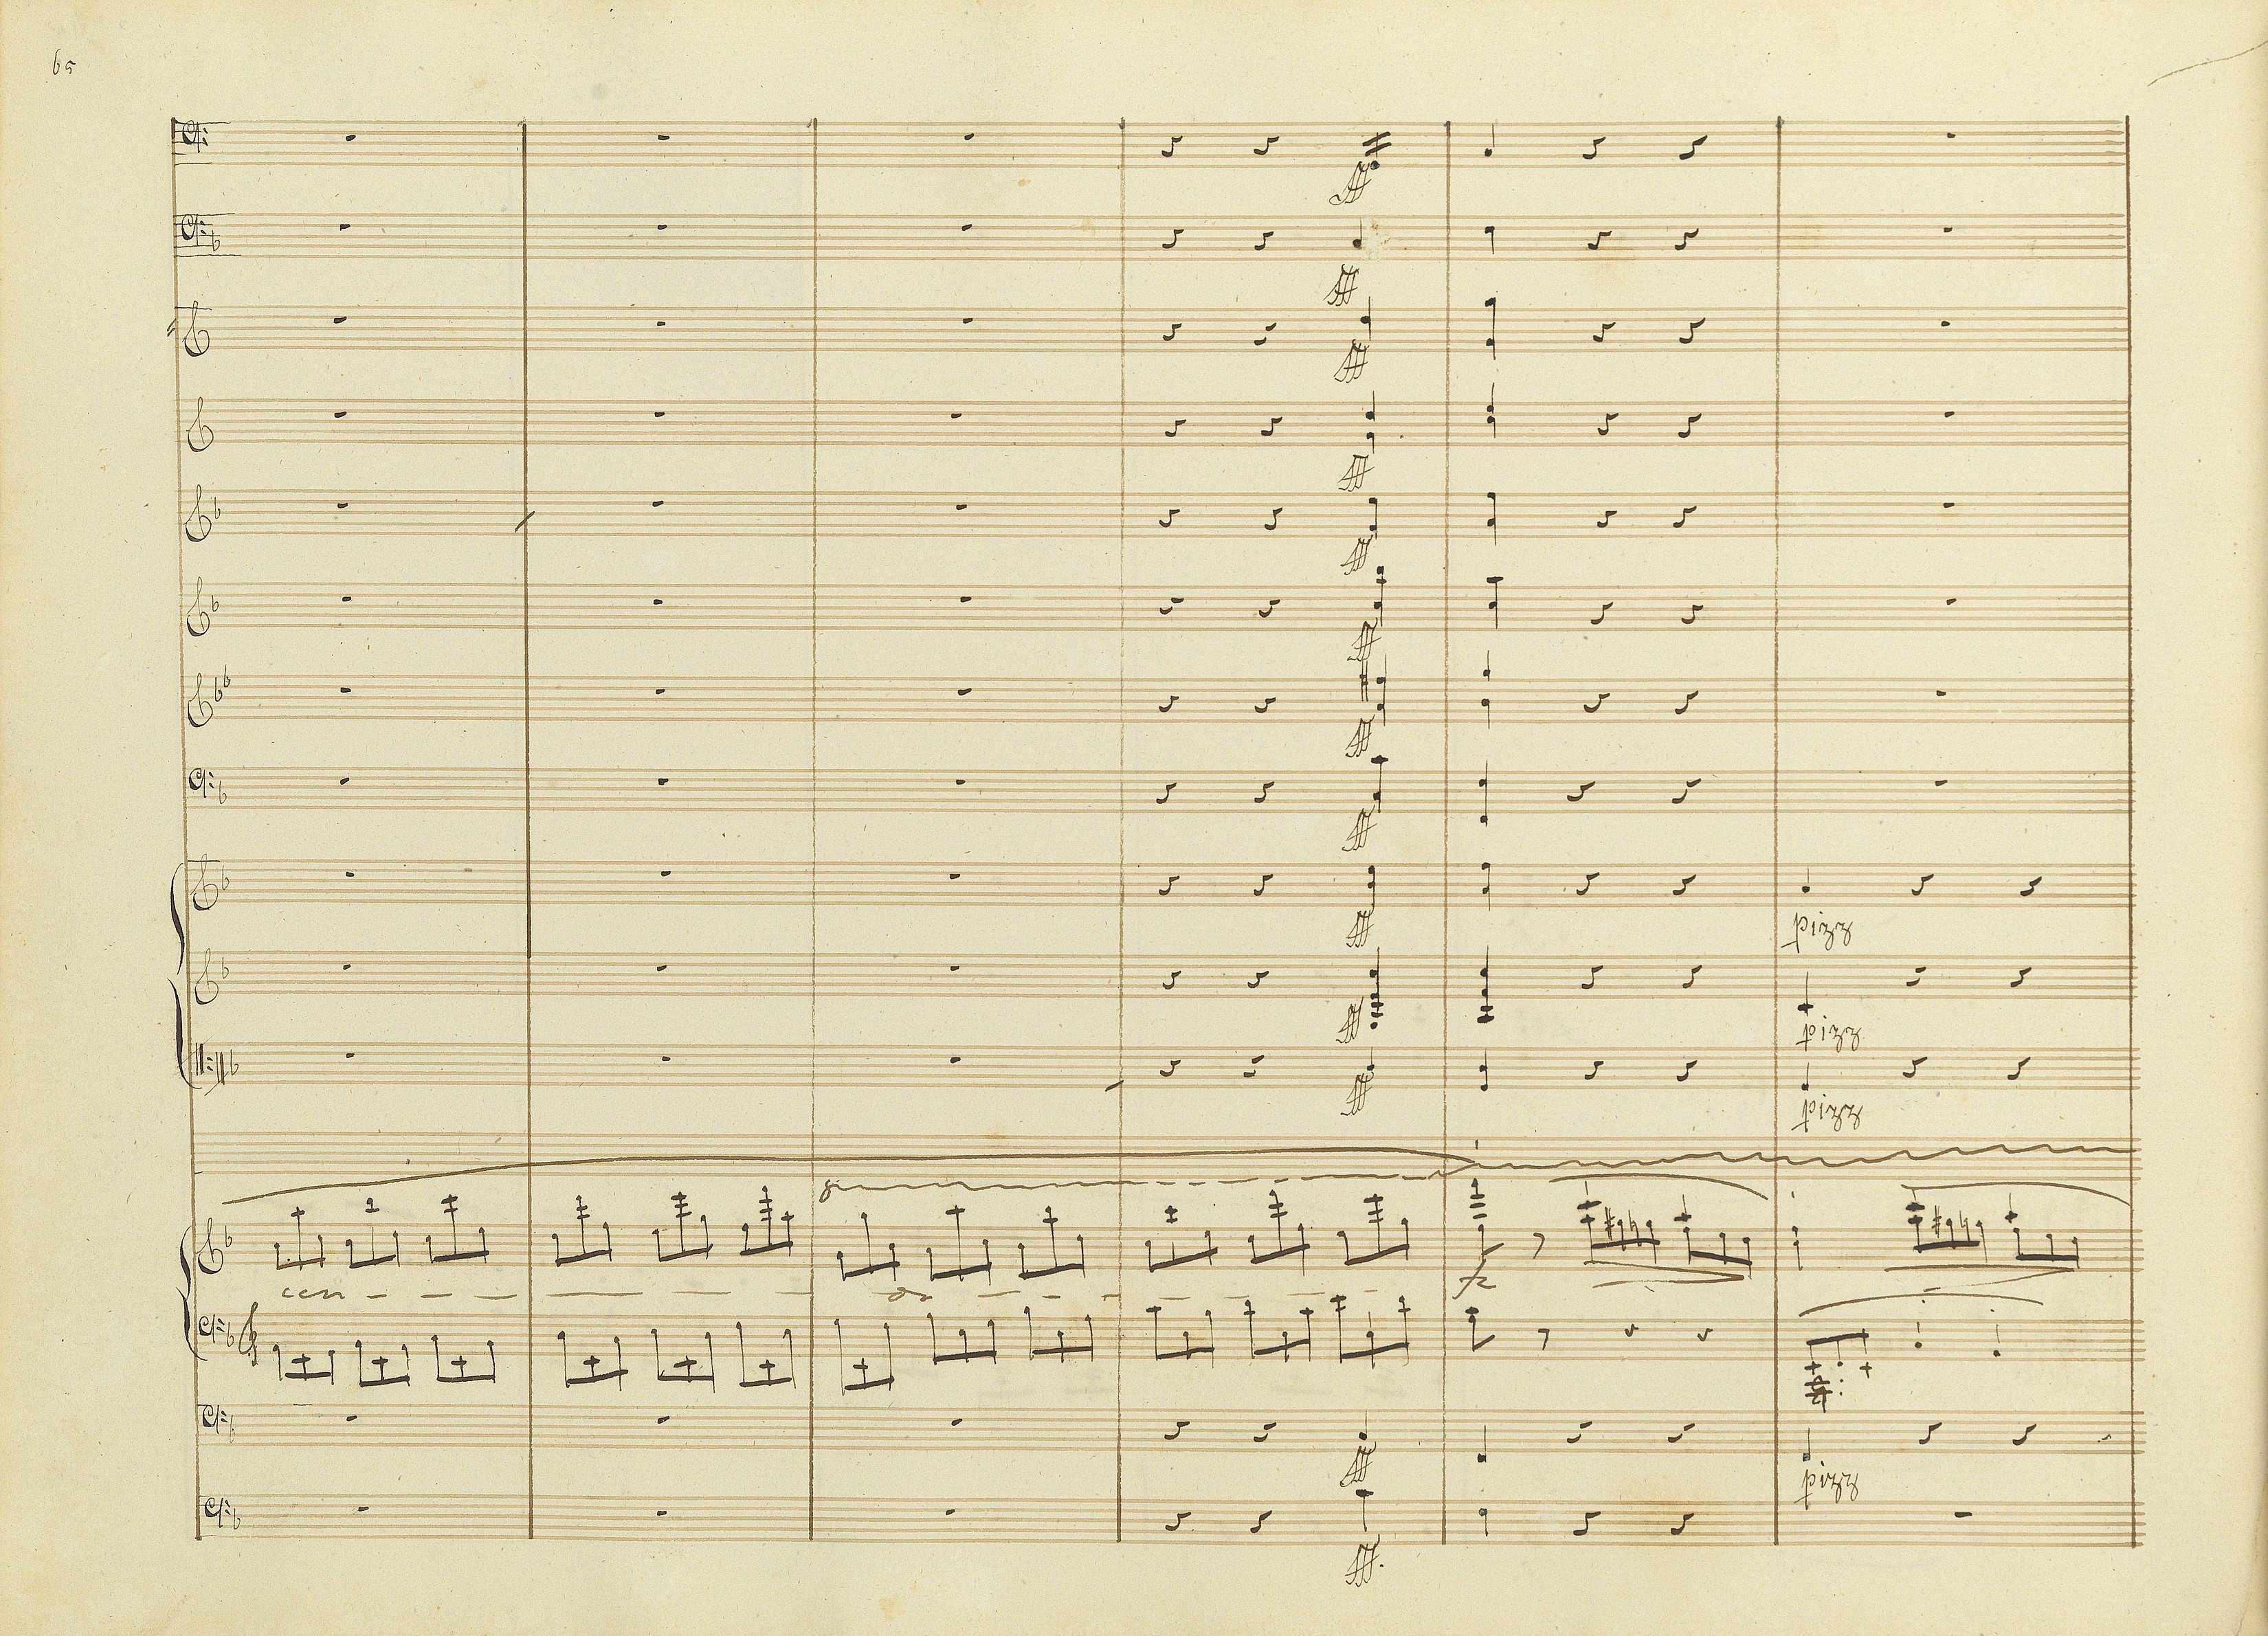 65
fff
fff
fff
fff
fff
fff
fff
fff
fff
pizz
fff
pizz
fff
pizz
8
fz
cen - - - do - - -
fff
pizz
fff.